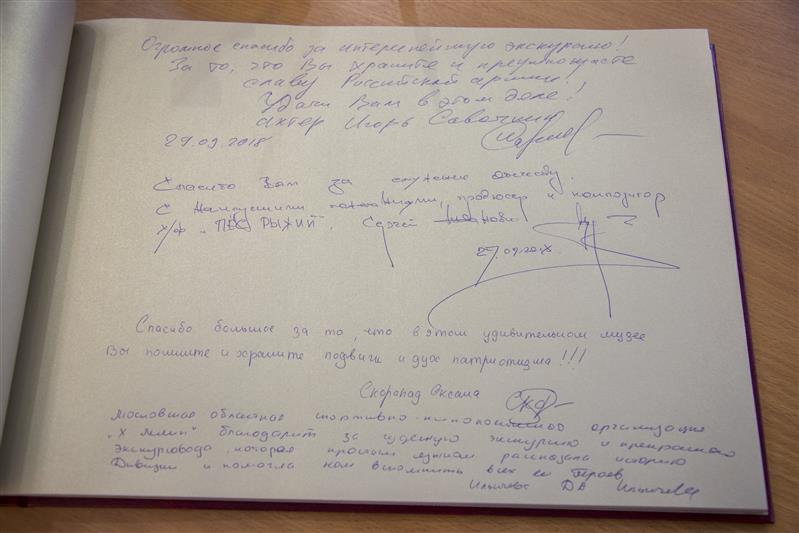 Огромное спасибо за интереснейшую экскурсию!
За то, что Вы храните и преумножаете
славу Российской армии!
Удачи Вам в этом деле!
актер Игорь Савочкин
29.09.2018
Спасибо Вам за служение отечеству.
С наилучшими пожеланиями, продюсер и композитор
х/ф „ПЁС РЫЖИЙ". Сергей
29.09.2018
Спасибо большое за то, что в этом удивительном музее
Вы помните и храните подвиги и дух патриотизма!!!
Скоропад Оксана
Московская областная спортивно-кинологическая организация
благодарит за чудесную экскурсию и прекрасного
экскурсовода, которая простым языком рассказала историю
Дивизии и помогла нам вспомнить всех ее Героев